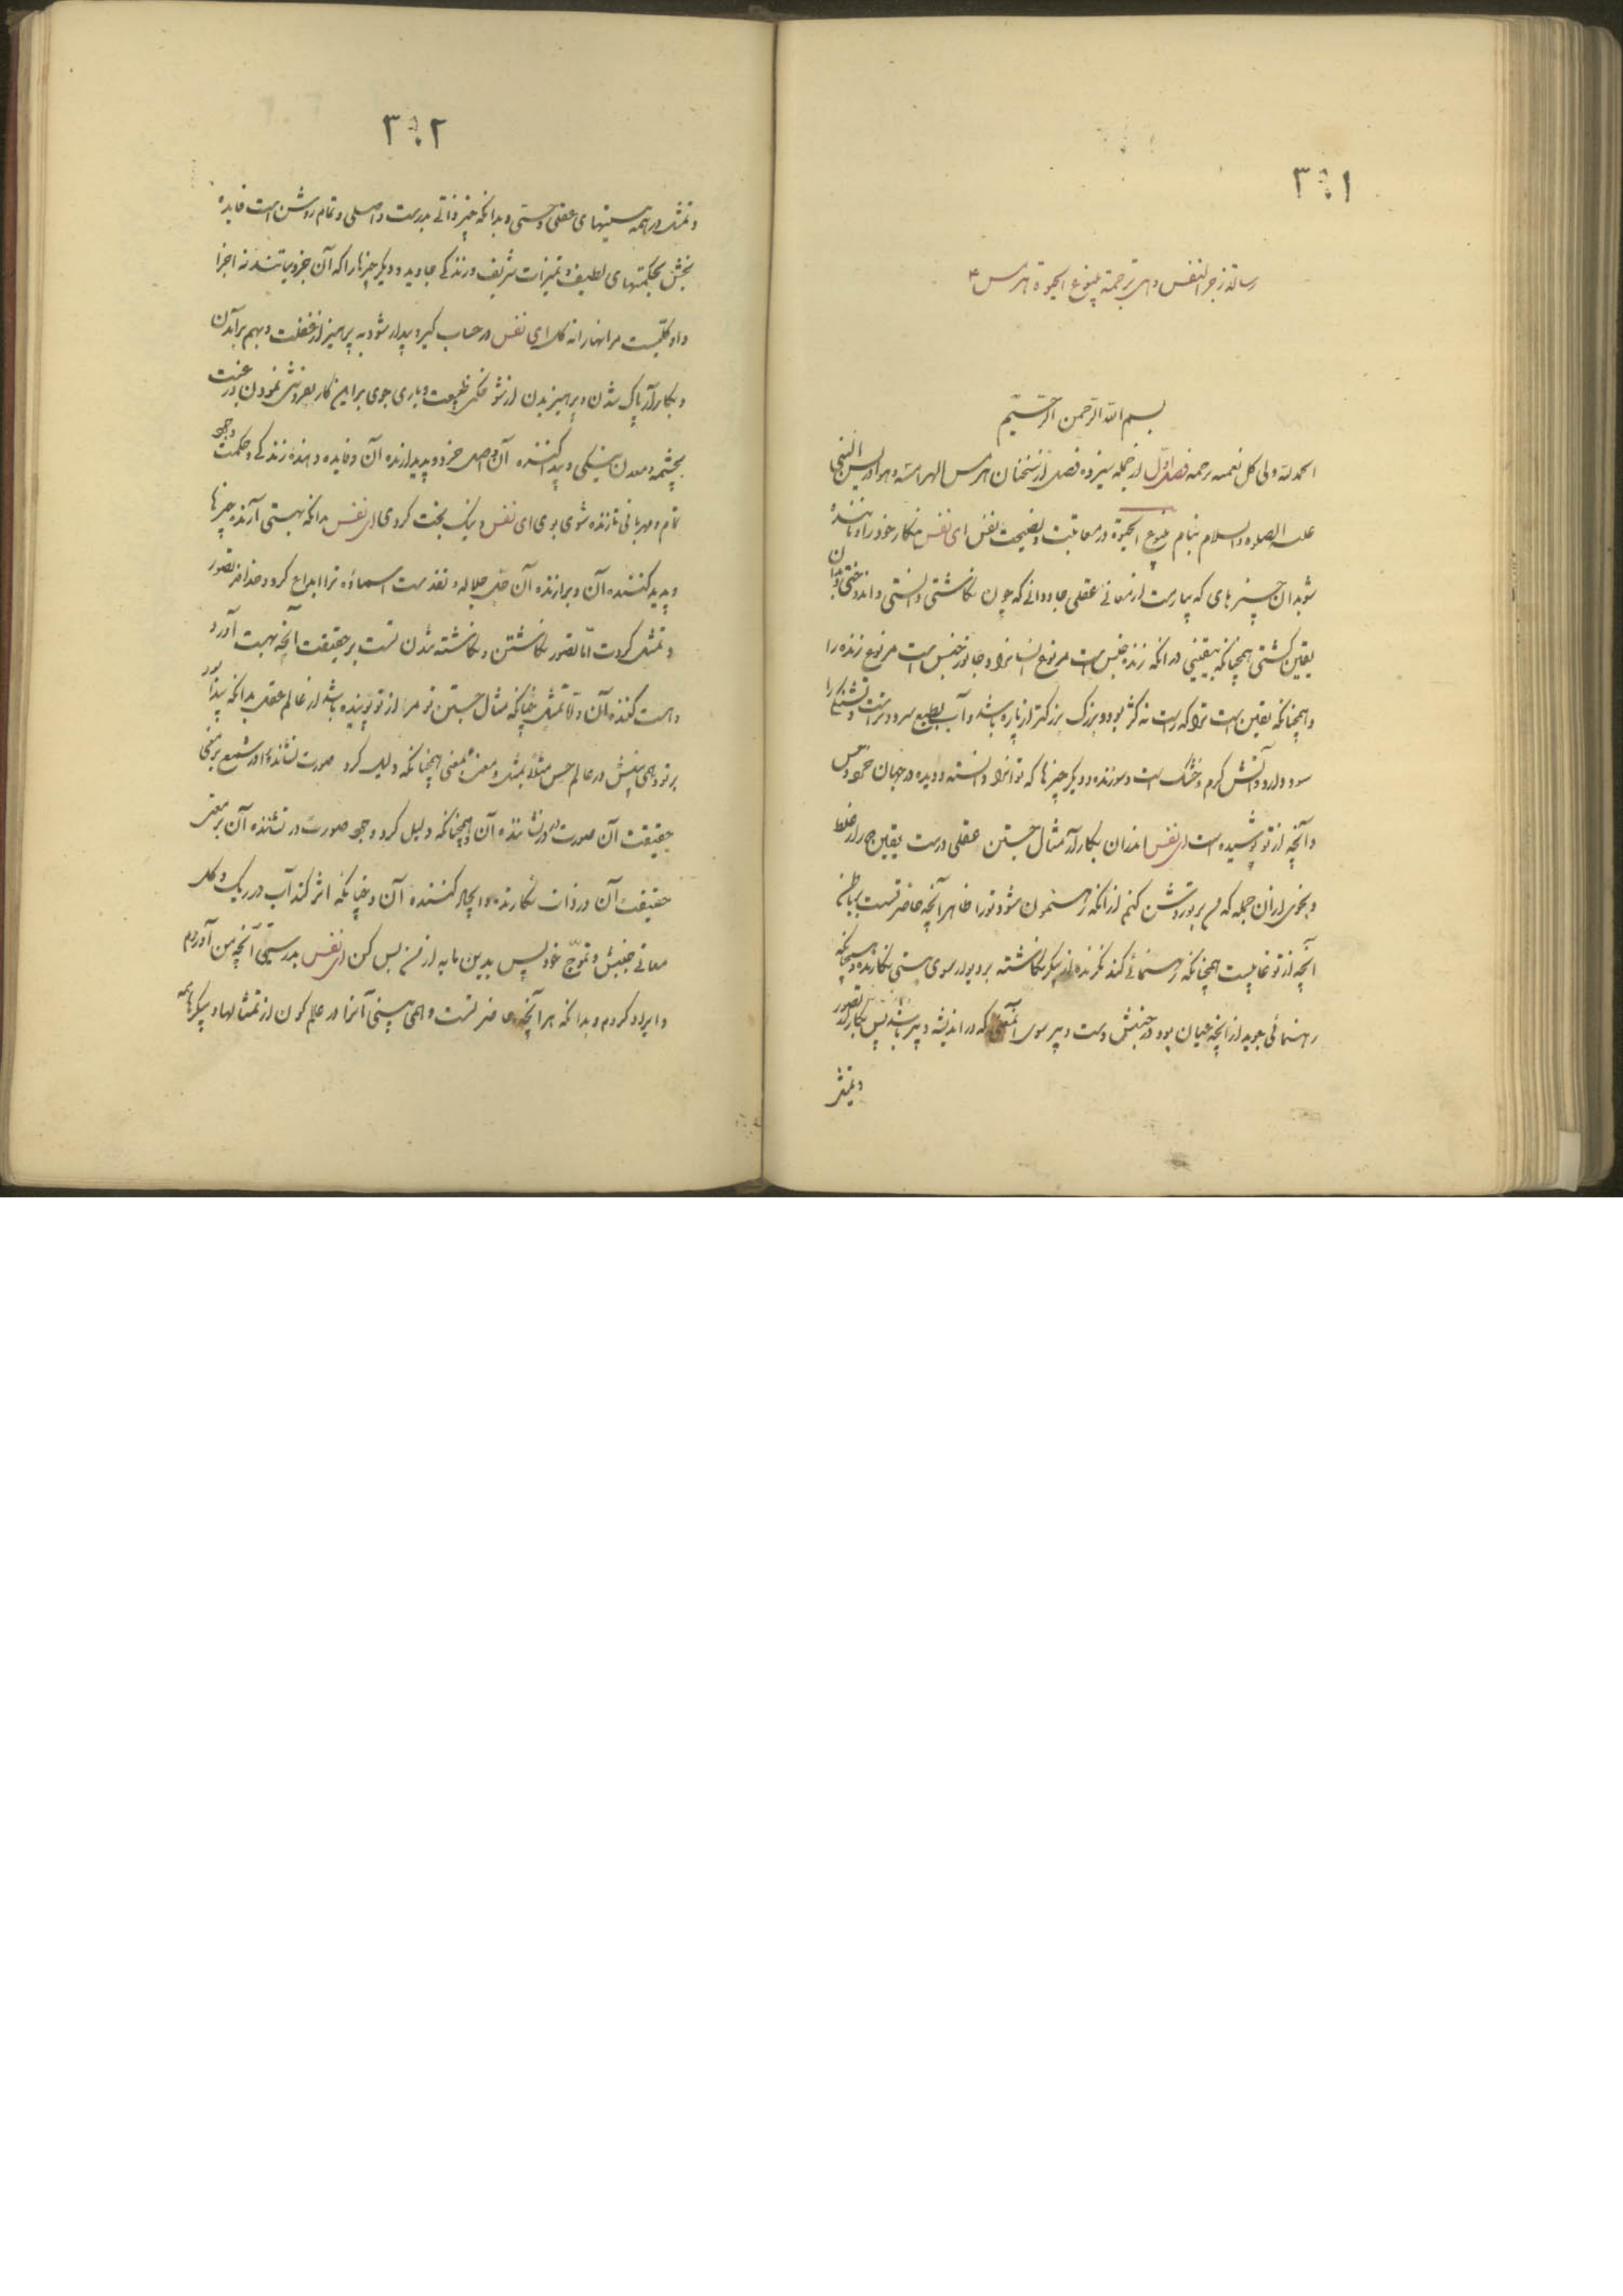 ٣٠١
رسالة زجر النفس وهی ترجمة ینبوع الحیوة هرمس ۴
بسم الله الرحمن الرحیم
الحمد لله ولی کل نعمه برحمه فصل اوّل از جمله سیزده فصل از سخنان هرمس الهرامسه وهو ادریس النبی
علیه الصلوه والسلام بنام ینبوع الحیوة در معاتبت و نصیحت نفس ای نفس نگار خود را و ماننده
شو بدان چیزهای که بیابی از معانی عقلی جاودانی که چون نگاشتی و دانستی و اندوختی و بدان
یقین گشتی همچنانکه بیقینی در انکه زنده جنس است مر نوع انسانرا و جانور جنس است مر نوع زنده را
و همچنانکه یقین است ترا که راست نه کژ بود و بزرگ بزرگتر از پاره باشد و آب بطبع سرد و تر است و تشنگیرا
سود دارد و آتش گرم و خشک است و سوزنده و دیگر چیزها که تو انرا دانسته و دیده در جهان خرد و حس
و آنچه از تو پوشیده است ای نفس اندران بکار آر مثال جستن عقلی درست یقین جدا از غلط
و بخوی ازان جمله که من بر تو روشن کنم ازانکه رهنمون شود تو را ظاهر آنچه حاضر تست بر باطن
آنچه از تو غایبست همچنانکه رهنمائی کند نگرنده از پیکر نگاشته بر دیوار سوی هستی نگارنده و همچنانکه
رهنمائی جوید از انچه عیان بود در جنبش دست دبیر سوی آنمعنی که در اندیشه دبیر باشد پس بکار آر تصور
و تمثل
٣٠٢
و تمثل در همه هستیهای عقلی و حسّی و بدانکه چیز ذاتی بدرست و اصلی و تمام روشن است فایده
بخش بحکمتهای لطیف و تمیزات شریف و زندگی جاوید و دیگر چیزها را که آن جزویاتند نه اجزا
و او کلّیست مر انها را نه کل ای نفس در حساب گیر و بیدار شو به پرهیز از غفلت و بهم برآمدن
و بکار آر پاک شدن و پرهیزیدن از شوخگنی طبیعت و یاری جوی بر این کار بفروتنی نمودن و رغبت
بچشمه و معدن نیکی و پیدا کننده آن و اصل خرد و پدید ارنده آن و فایده دهنده زندگی و حکمت وجود
تمام و مهربانی تا زنده شوی بوی ای نفس و نیک بخت گردی ای نفس بدانکه بهستی آرنده چیزها
و پدید کننده آن و برازنده آن جل جلاله و تقدست اسماؤه ترا ابداع کرد و خداوند تصور
و تمثل کردت امّا تصور نگاشتن و نگاشته شدن تست بر حقیقت آنچه بهست آورد
و هست کننده آن و امّا تمثل چنانکه مثال جستن تو مر از تو پوینده باشد از عالم عقل بدانکه پیدا بود
بر تو و همی بینیش در عالم حس مثلاً بمثل و معنی بمعنی همچنانکه دلیل کرد صورت نشانده در شمع بر معنی
حقیقت آن صورت در نشاننده آن و همچنانکه دلیل کرد وجود صورت در نشاننده آن بر معنی
حقیقت آن در ذات نگارنده و ایجاد کننده آن و چنانکه اثر کند آب در ریگ و گل
معانی جنبش و تموّج خود پس بدین مایه از من بس کن ای نفس بدرستی آنچه من آوردم
و ایراد کردم و بدانکه هر آنچه حاضر تست و همی بینی آنرا در عالم کون از تمثالها و پیکرها همه